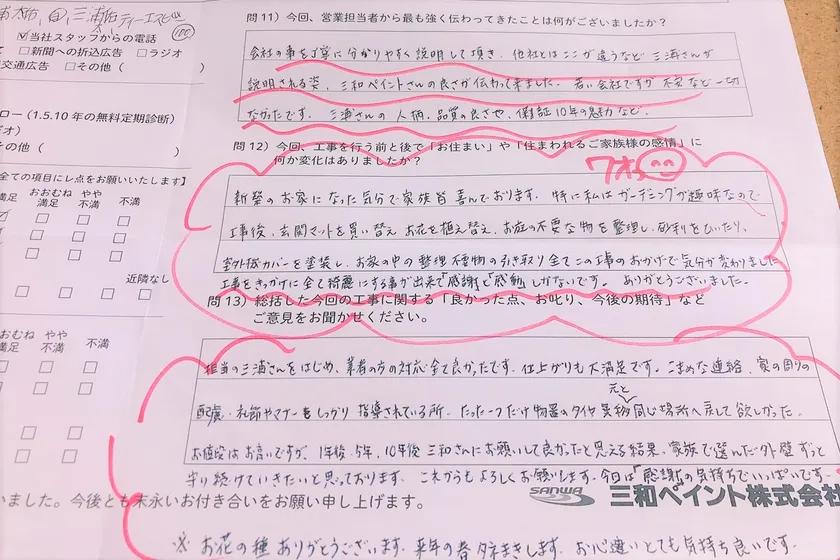 ☑当社スタッフからの電話
□新聞への折込広告 □ラジオ
交通広告 □その他(
ロー(1.5.10年の無料定期診断)
その他( )
全ての項目にレ点をお願いいたします】
満足 おおむね満足 やや不満 不満
近隣なし
おおむね満足 やや不満 不満
問11)今回、営業担当者から最も強く伝わってきたことは何がございましたか？
会社の事を丁寧に分かりやすく説明して頂き、他社とはここが違うなど 三浦さんが
説明される姿、三和ペイントさんの良さが伝わって来ました。若い会社ですが 不安など一切
なかったです。三浦さんの人柄、品質の良さや、保証10年の魅力など。
問12)今回、工事を行う前と後で「お住まい」や「住まわれるご家族様の感情」に
何か変化はありましたか？
ワオっ
新築のお家になった気分で家族皆喜んでおります。特に私はガーデニングが趣味なので
工事後、玄関マットを買い替え お花を植え替え、お庭の不要な物を整理し、砂利をひいたり、
室外機カバーを塗装し、お家の中の整理 不要物の引き取り全てこの工事のおかげで気分が変わりました
工事をきっかけに全て綺麗にする事が出来て「感謝」と「感動」しかないです。 ありがとうございました。
問13)総括した今回の工事に関する「良かった点、お叱り、今後の期待」など
ご意見をお聞かせください。
担当の三浦さんをはじめ、業者の方の対応全て良かったです。仕上がりも大満足です。こまめな連絡、家の周りの
配慮、礼節やマナーをしっかり指導されている所。たった一つだけ物置のタイヤ 元と同じ場所へ戻して欲しかった。
お値段はお高いですが、1年後、5年、10年後 三和さんにお願いして良かったと思える結果、家族で選んだ外壁ずっと
守り続けていきたいと思っております。これからもよろしくお願いします。今日は「感謝」の気持ちでいっぱいです。
いました。今後とも末永いお付き合いをお願い申し上げます。
SANWA 三和ペイント株式会社
※ お花の種ありがとうございます。来年の春 タネまきします。お心遣いとても気持ち良いです。